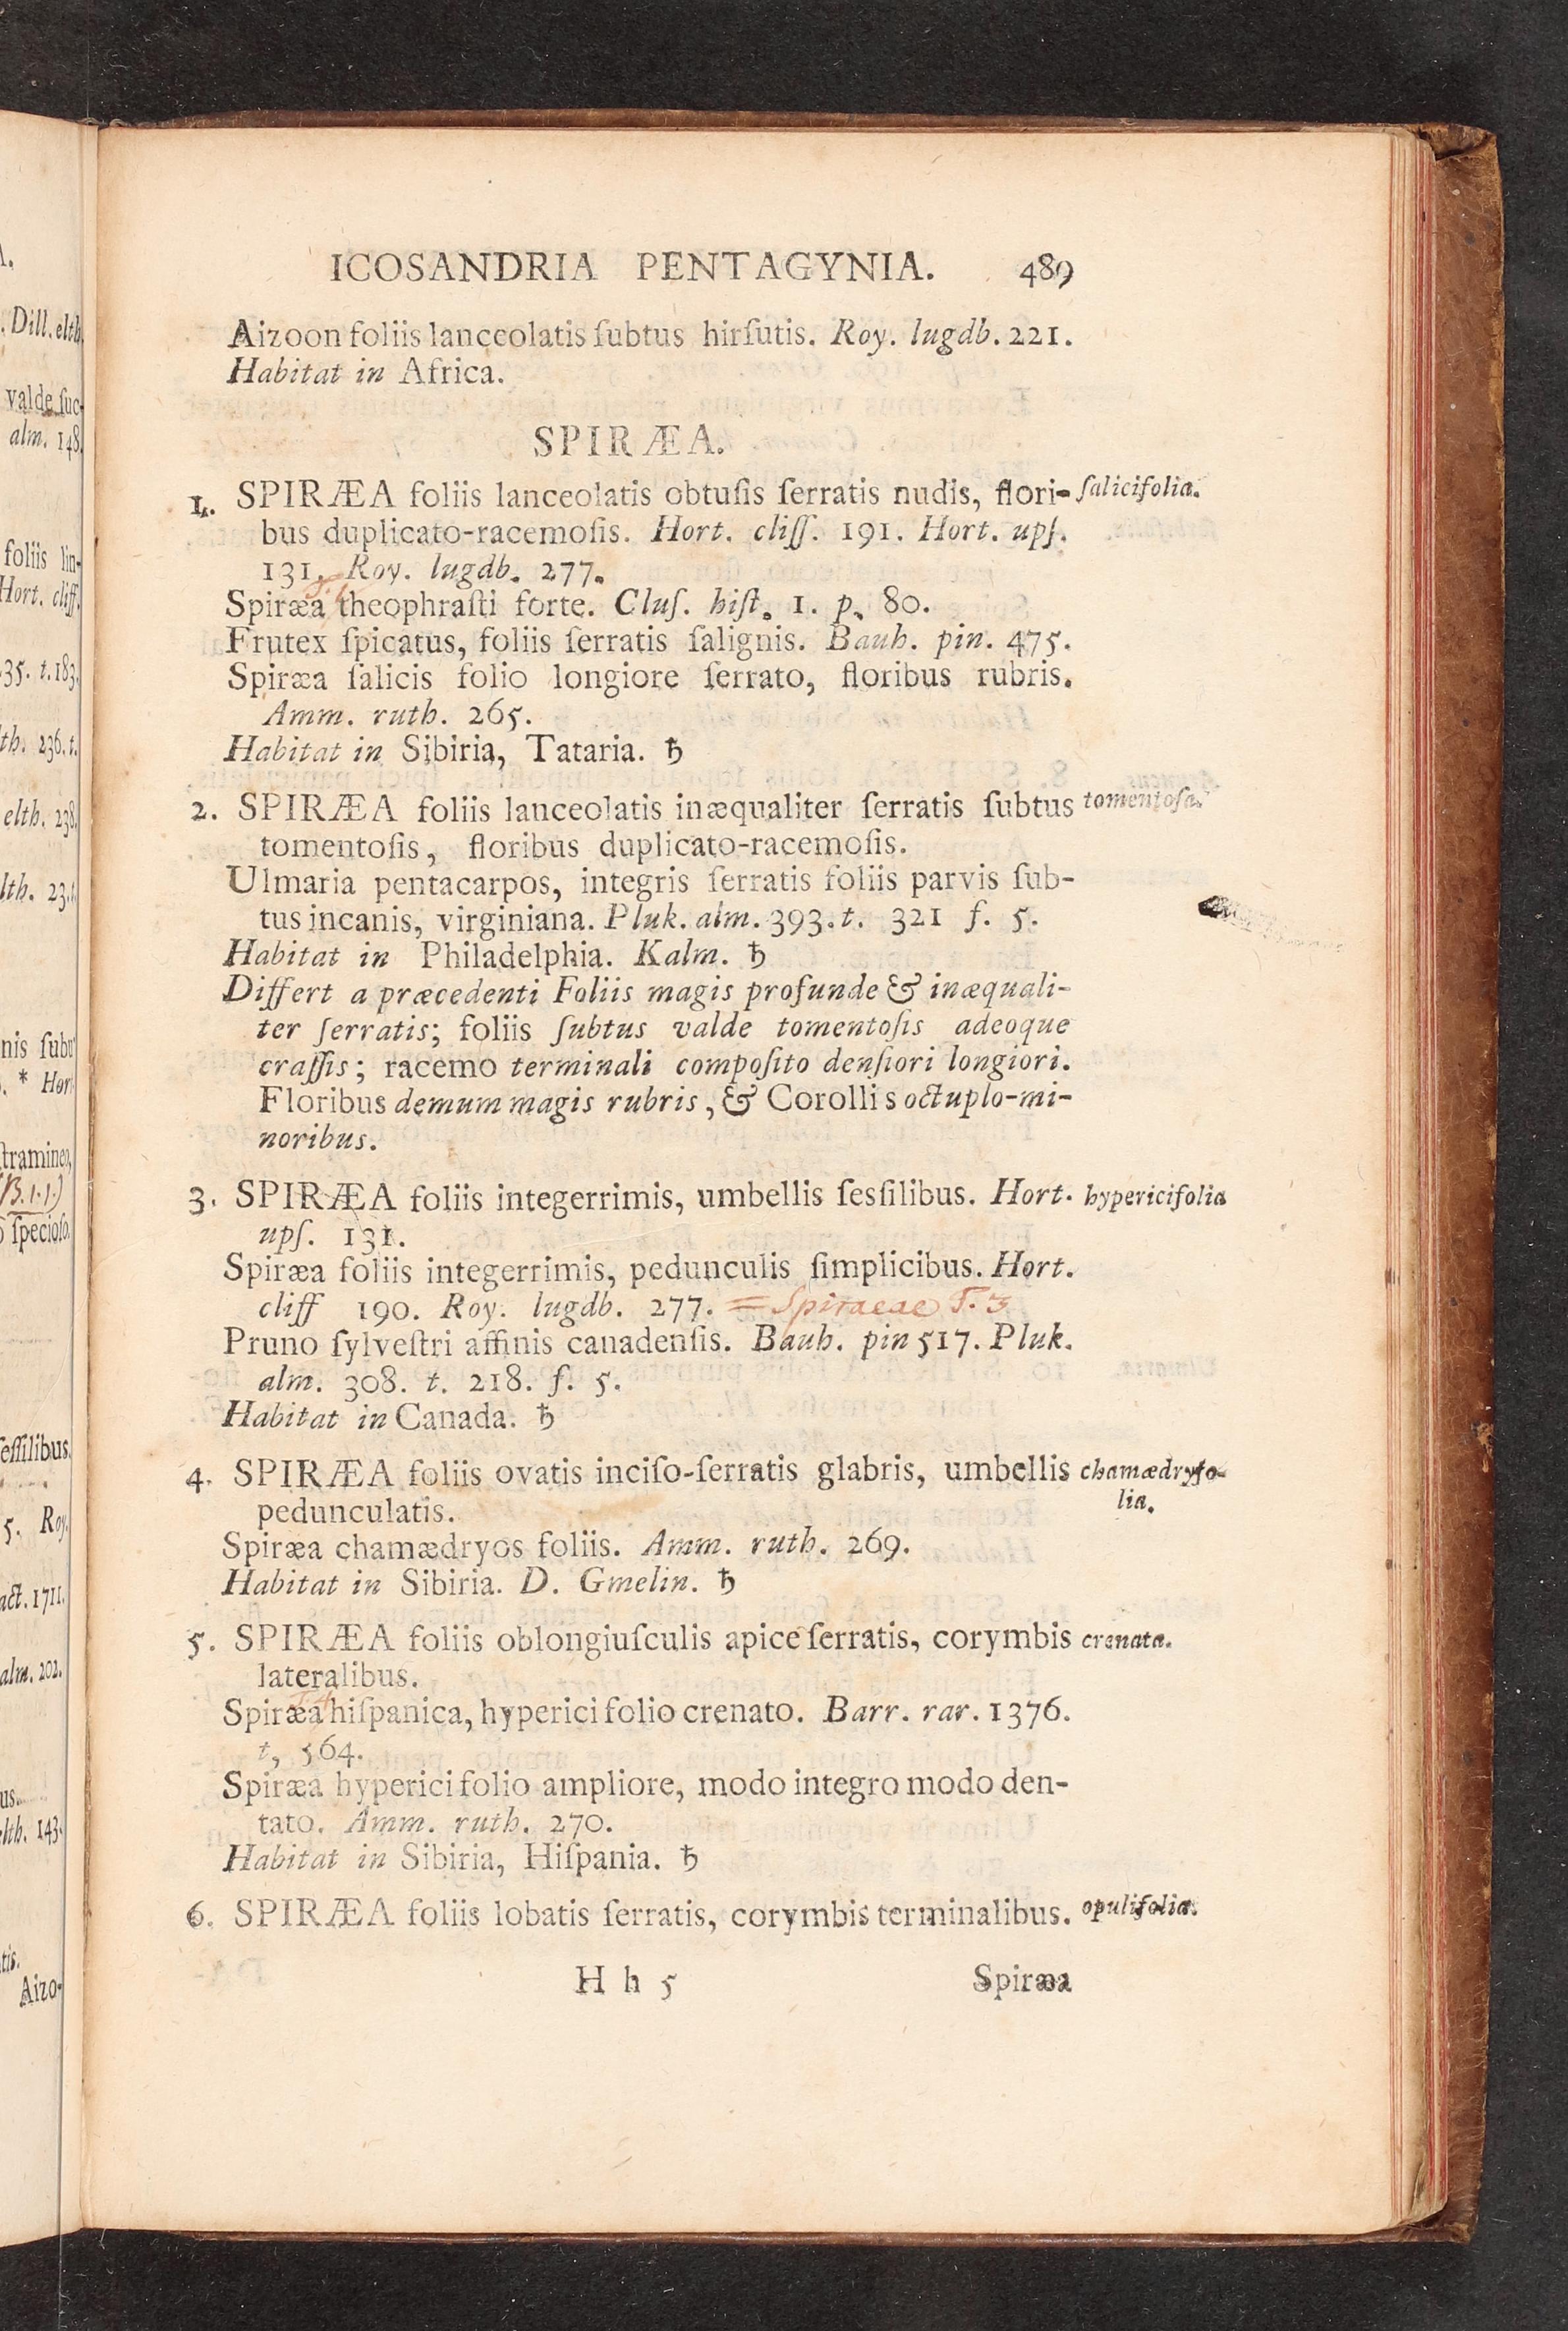 ICOSANDRIA PENTAGYNIA. 489
Aizoon foliis lanceolatis ſubtus hirſutis. Roy. lugdb. 221.
Habitat in Africa.
SPIRÆA.
1. SPIRÆA foliis lanceolatis obtuſis ſerratis nudis, flori- ſalicifolia.
bus duplicato-racemoſis. Hort. cliff. 191. Hort. upſ.
131. Roy. lugdb. 277.
Spiræa theophraſti forte. Cluſ. hiſt. 1. p. 80.
Frutex ſpicatus, foliis ſerratis ſalignis. Bauh. pin. 475.
Spiræa ſalicis folio longiore ſerrato, floribus rubris.
Amm. ruth. 265.
Habitat in Sibiria, Tataria. ♄
2. SPIRÆA foliis lanceolatis inæqualiter ſerratis ſubtus tomentoſa.
tomentoſis, floribus duplicato-racemoſis.
Ulmaria pentacarpos, integris ſerratis foliis parvis ſub-
tus incanis, virginiana. Pluk. alm. 393. t. 321 f. 5.
Habitat in Philadelphia. Kalm. ♄
Differt a præcedenti Foliis magis profunde & inæquali-
ter ſerratis; foliis ſubtus valde tomentoſis adeoque
craſſis; racemo terminali compoſito denſiori longiori.
Floribus demum magis rubris, & Corollis octuplo-mi-
noribus.
3. SPIRÆA foliis integerrimis, umbellis ſesſilibus. Hort. hypericifolia
upſ. 131.
Spiræa foliis integerrimis, pedunculis ſimplicibus. Hort.
cliff 190. Roy. lugdb. 277. = Spiraeae T. 3
Pruno ſylveſtri affinis canadenſis. Bauh. pin 517. Pluk.
alm. 308. t. 218. f. 5.
Habitat in Canada. ♄
4. SPIRÆA foliis ovatis inciſo-ſerratis glabris, umbellis chamædryfo-
pedunculatis. lia.
Spiræa chamædryos foliis. Amm. ruth. 269.
Habitat in Sibiria. D. Gmelin. ♄
5. SPIRÆA foliis oblongiuſculis apice ſerratis, corymbis crenata.
lateralibus.
Spiræa hiſpanica, hyperici folio crenato. Barr. rar. 1376.
t, 564.
Spiræa hyperici folio ampliore, modo integro modo den-
tato. Amm. ruth. 270.
Habitat in Sibiria, Hiſpania. ♄
6. SPIRÆA foliis lobatis ſerratis, corymbis terminalibus. opulifolia.
H h 5 Spiræa